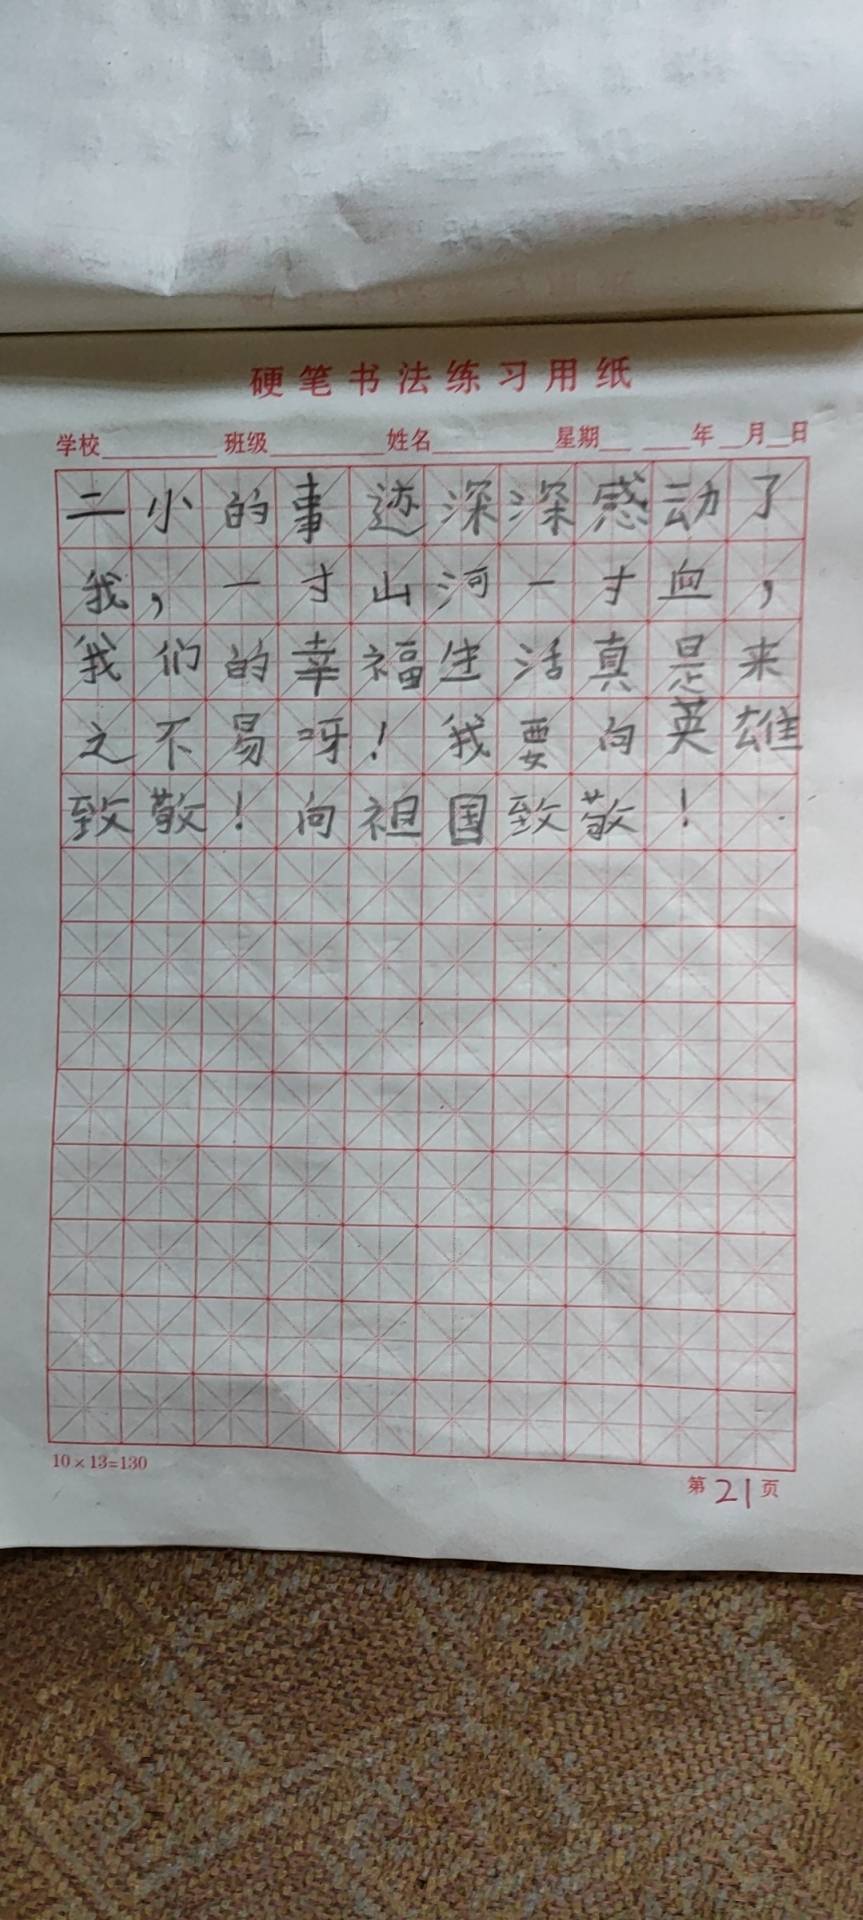 硬笔书法练习用纸
学校 班级 姓名 星期 年 月 日
二小的事迹深深感动了
我，一寸山河一寸血，
我们的幸福生活真是来
之不易呀！我要向英雄
致敬！向祖国致敬！
10×13=130
第21页